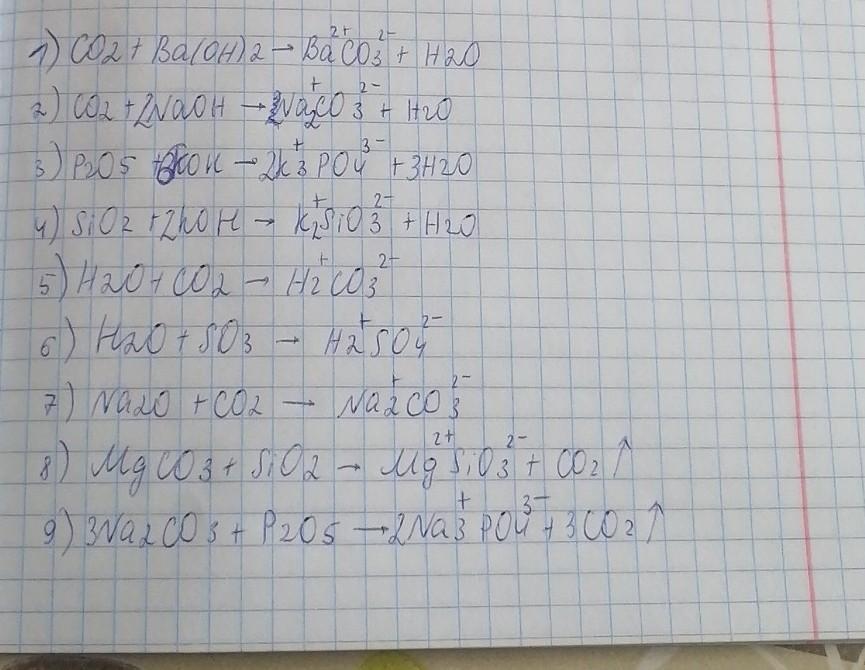 1) CO2 + Ba(OH)2 → Ba²⁺CO3²⁻ + H2O
2) CO2 + 2NaOH → Na2⁺CO3²⁻ + H2O
3) P2O5 + 6KOH → 2K3⁺PO4³⁻ + 3H2O
4) SiO2 + 2KOH → K2⁺SiO3²⁻ + H2O
5) H2O + CO2 → H2⁺CO3²⁻
6) H2O + SO3 → H2⁺SO4²⁻
7) Na2O + CO2 → Na2⁺CO3²⁻
8) MgCO3 + SiO2 → Mg²⁺SiO3²⁻ + CO2↑
9) 3Na2CO3 + P2O5 → 2Na3⁺PO4³⁻ + 3CO2↑